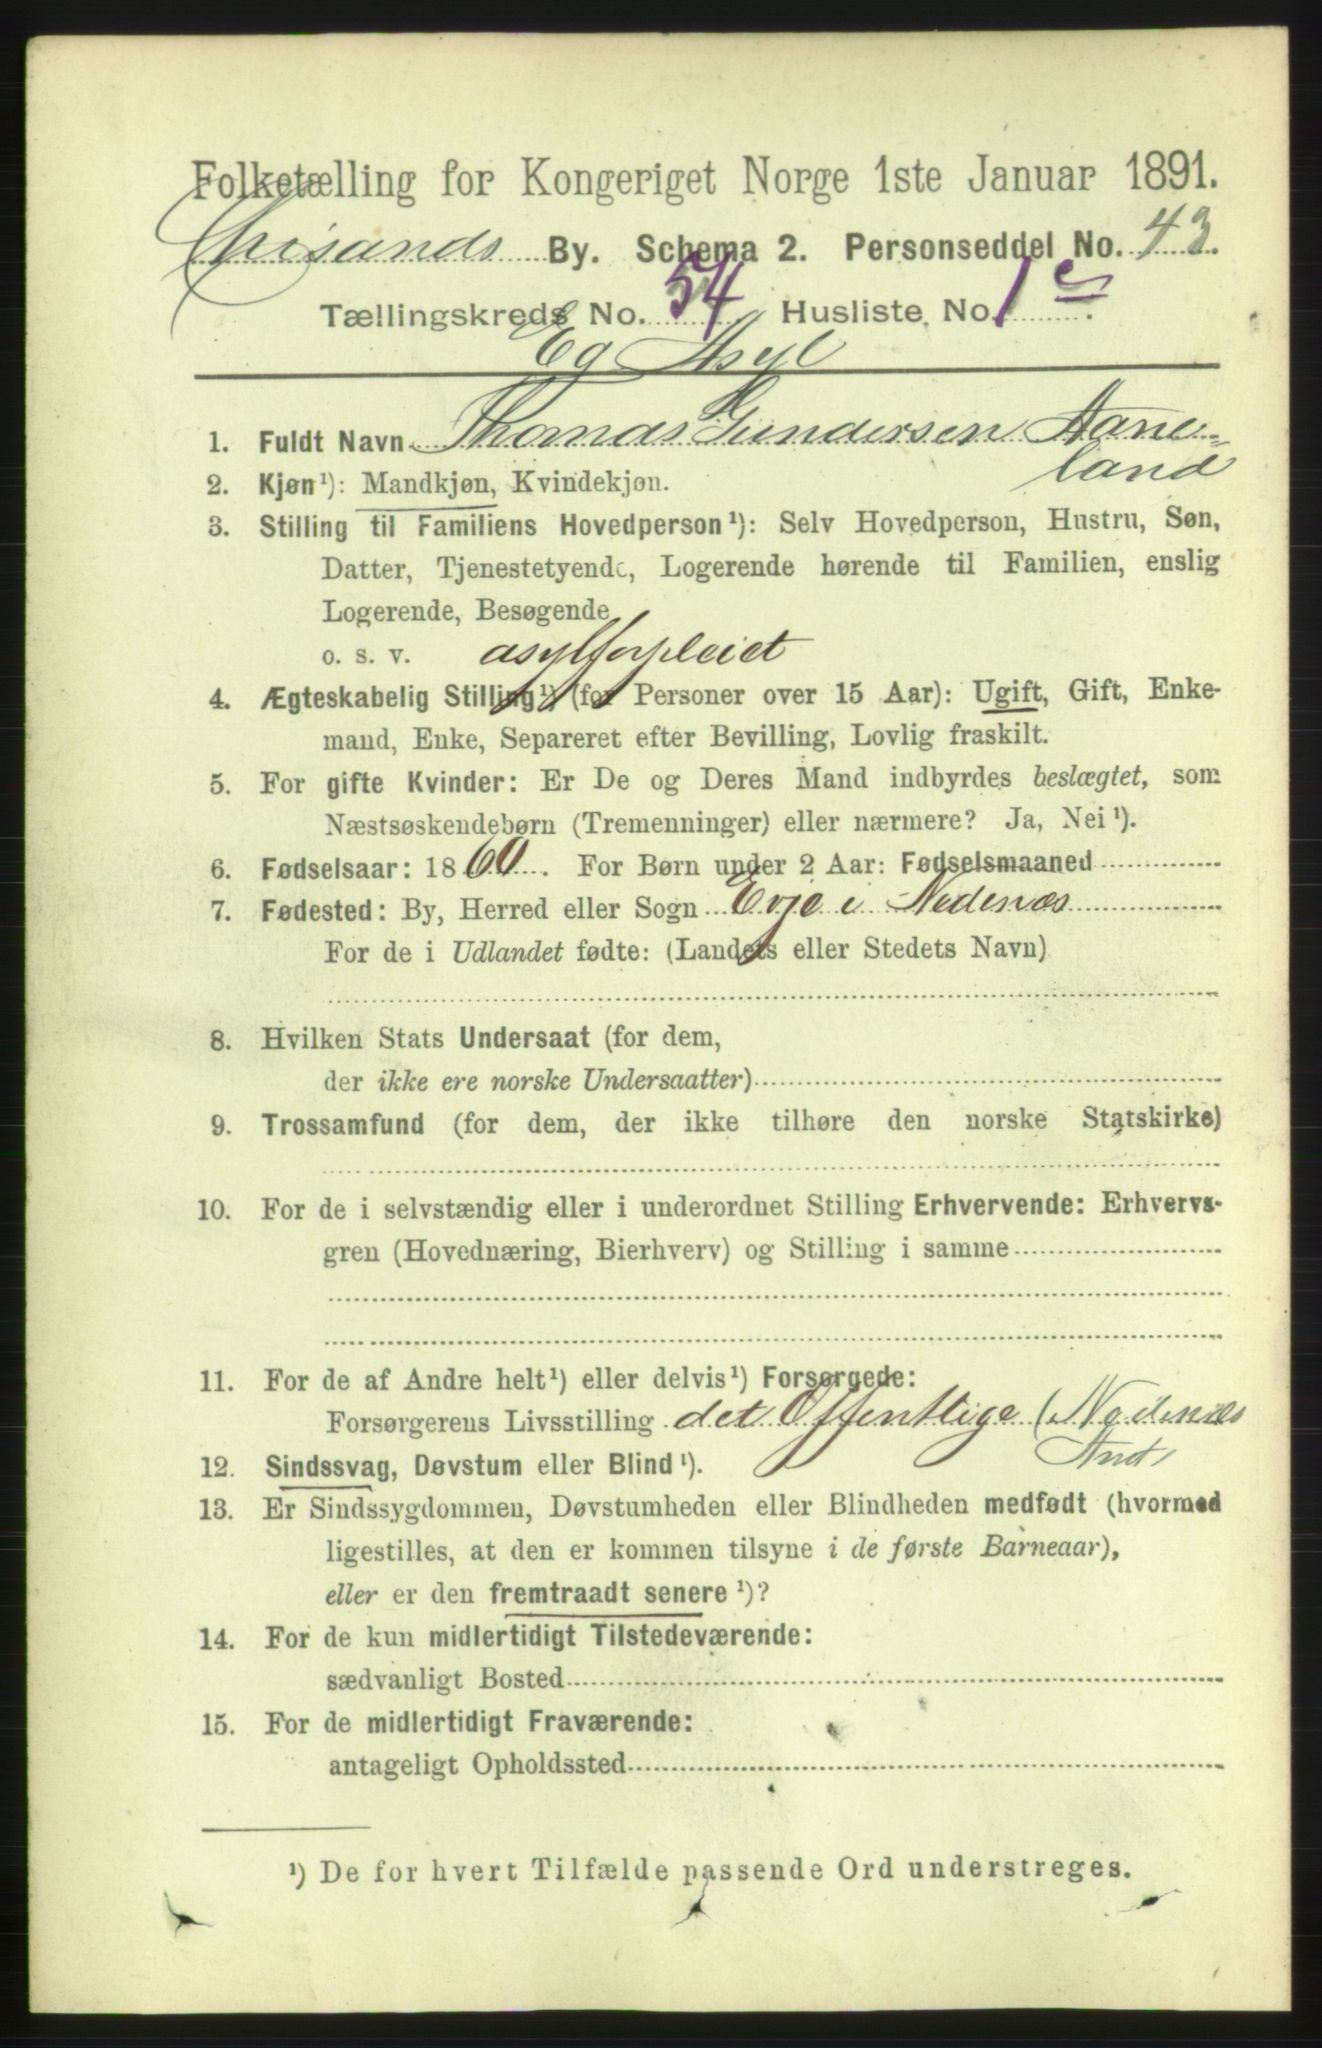 Folketælling for Kongeriget Norge 1ste Januar 1891.
Chrisands By. Schema 2. Personseddel No. 43.
Tællingskreds No. 54 Husliste No. 1 c.
Eg Asyl
1. Fuldt Navn Thomas Gundersen Aane=
land
2. Kjøn¹): Mandkjøn, Kvindekjøn.
3. Stilling til Familiens Hovedperson¹): Selv Hovedperson, Hustru, Søn,
Datter, Tjenestetyende, Logerende hørende til Familien, enslig
Logerende, Besøgende
o. s. v. asylforpleiet
4. Ægteskabelig Stilling¹) (for Personer over 15 Aar): Ugift, Gift, Enke-
mand, Enke, Separeret efter Bevilling, Lovlig fraskilt.
5. For gifte Kvinder: Er De og Deres Mand indbyrdes beslægtet, som
Næstsøskendebørn (Tremenninger) eller nærmere? Ja, Nei¹).
6. Fødselsaar: 1860. For Børn under 2 Aar: Fødselsmaaned
7. Fødested: By, Herred eller Sogn Evje i Nedenæs
For de i Udlandet fødte: (Landets eller Stedets Navn)
8. Hvilken Stats Undersaat (for dem,
der ikke ere norske Undersaatter)
9. Trossamfund (for dem, der ikke tilhøre den norske Statskirke)
10. For de i selvstændig eller i underordnet Stilling Erhvervende: Erhvervs-
gren (Hovednæring, Bierhverv) og Stilling i samme
11. For de af Andre helt¹) eller delvis¹) Forsørgede:
Forsørgerens Livsstilling det Offentlige (Nedenæs
Amt,
12. Sindssvag, Døvstum eller Blind¹).
13. Er Sindssygdommen, Døvstumheden eller Blindheden medfødt (hvormed
ligestilles, at den er kommen tilsyne i de første Barneaar),
eller er den fremtraadt senere¹)?
14. For de kun midlertidigt Tilstedeværende:
sædvanligt Bosted
15. For de midlertidigt Fraværende:
antageligt Opholdssted
¹) De for hvert Tilfælde passende Ord understreges.